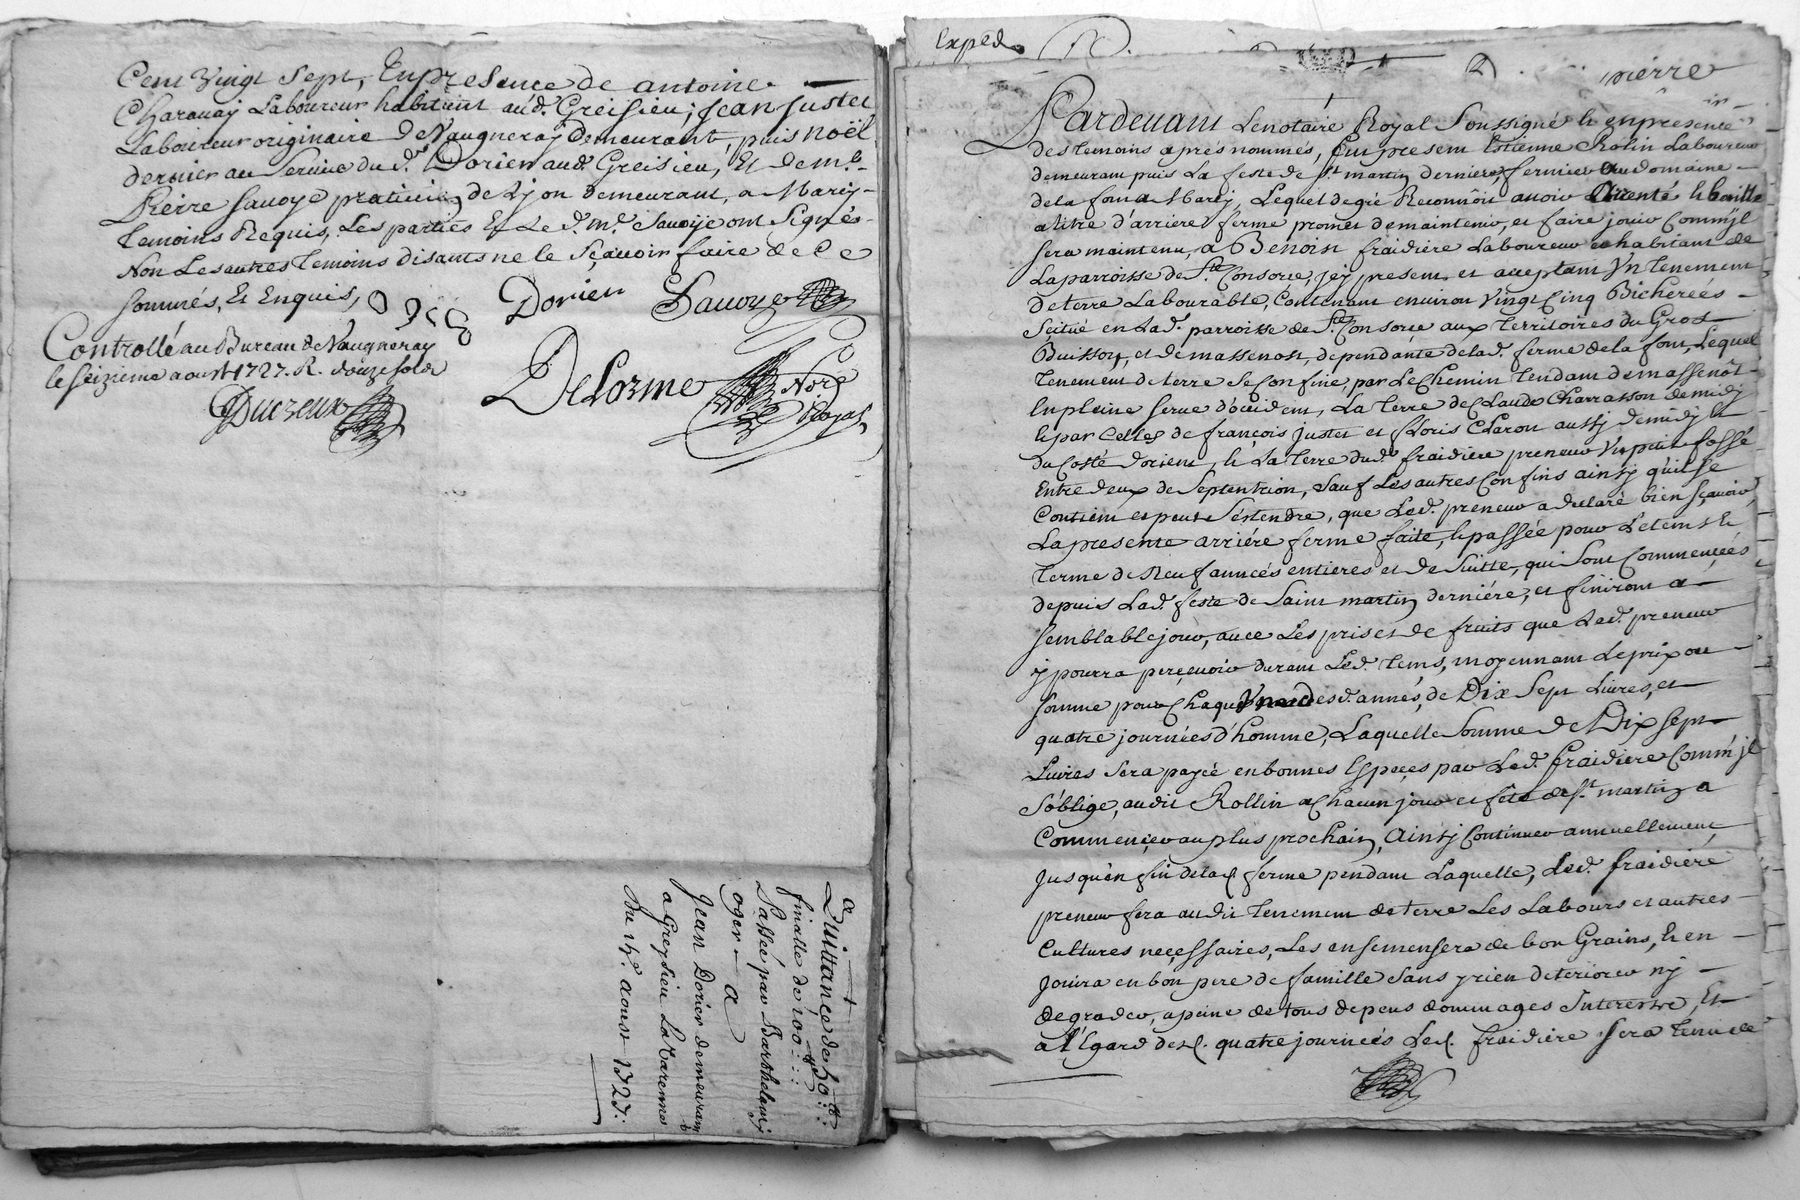 Cent Vingt Sept, En presence de antoine
Charauay Laboureur habitant aud. Greisieu; Jean Justet
Laboureur originaire de Vaugneray demeurant, puis noël
dernier au Service du d. Dorier aud. Greisieu, Et de me.
Pierre Sauoye praticien de Lyon demeurant, a Marcy
temoins Requis, Les parties Et Le d. me. Sauoye ont Signés
Non Les autres temoins disants ne le Sçauoir faire de Ce
Sommés, Et Enquis,
Dorier Sauoye
Controllé au Bureau de Vaugneray
le Seizieme aoust 1727. R. douze sols
Ducreux
DeLorme Nore
Royal
Quittance de 50
finalle de 100
Passée par Barthelemy
oger a
Jean Dorier demeurant
a Greysieu La Varenne
Du 14e. aoust 1727.
Exped.
pierre
Pardeuant Le notaire Royal Soussigné & en presence
des temoins apres nommés, fut present Estienne Rolin Laboureur
demeurant puis La feste de St. martin derniere, fermier du domaine
de la font a Marcy, Lequel de gré Reconnoit auoir
a titre d'arriere ferme promet de maintenir, et faire jouir Comm'jl
Sera maintenu, a Benoist fraidiere Laboureur habitant de
La parroisse de Ste. Consorce, jcy present et acceptant Vn tenement
de terre Labourable, Contenant enuiron Vingt Cinq Bicherées
Scitué en Lad. parroisse de Ste. Consorce aux territoires du Gros
Buisson, et de massenost, dependante de lad. ferme de la font, Lequel
tenement de terre Se Confine, par Le Chemin tendant de massenôt
En pleine Serue d'occident, La terre de Claude Charrasson de midy
& par Celles de françois Justet et floris Claron aussy de midy et
du Costé d'orient, & La terre dud. fraidiere preneur Vn petit fossé
Entre deux de Septentrion, Sauf Les autres Confins ainsy qu'il Se
Contient et peut S'estendre, que Led. preneur a declaré bien sçauoir,
La presente arriére ferme faite, & passée pour Le tems &
terme de Neuf années entieres et de Suitte, qui Sont Commencées
depuis Lad. feste de Saint martin derniére, et finiront a
Semblable jour, auec Les prises de fruits que Led. preneur
y pourra perceuoir durant Led. tems, moyennant Le prix ou
Somme pour Chaqu'Vne desd. annés, de Dix Sept Liures, et
quatre journées d'homme, Laquelle Somme de Dix sept
Liures Sera payée en bonnes Especes par Led. fraidiere Comm'jl
S'oblige, audit Rollin a Chacun jour et fête de St. martin a
Commencer au plus prochain, Ainsy Continuer annuellement
Jusqu'en fin de lad. ferme pendant Laquelle, Led. fraidiere
preneur fera audit tenement de terre Les Labours et autres
Cultures necessaires, Les ensemensera de bon Grains, & en
Jouira en bon pere de famille Sans y rien deteriorer ny
degrader, a peine de tous depens dommages Interests, Et
à l'Egard desd. quatre journées Led. fraidiere Sera tenu de